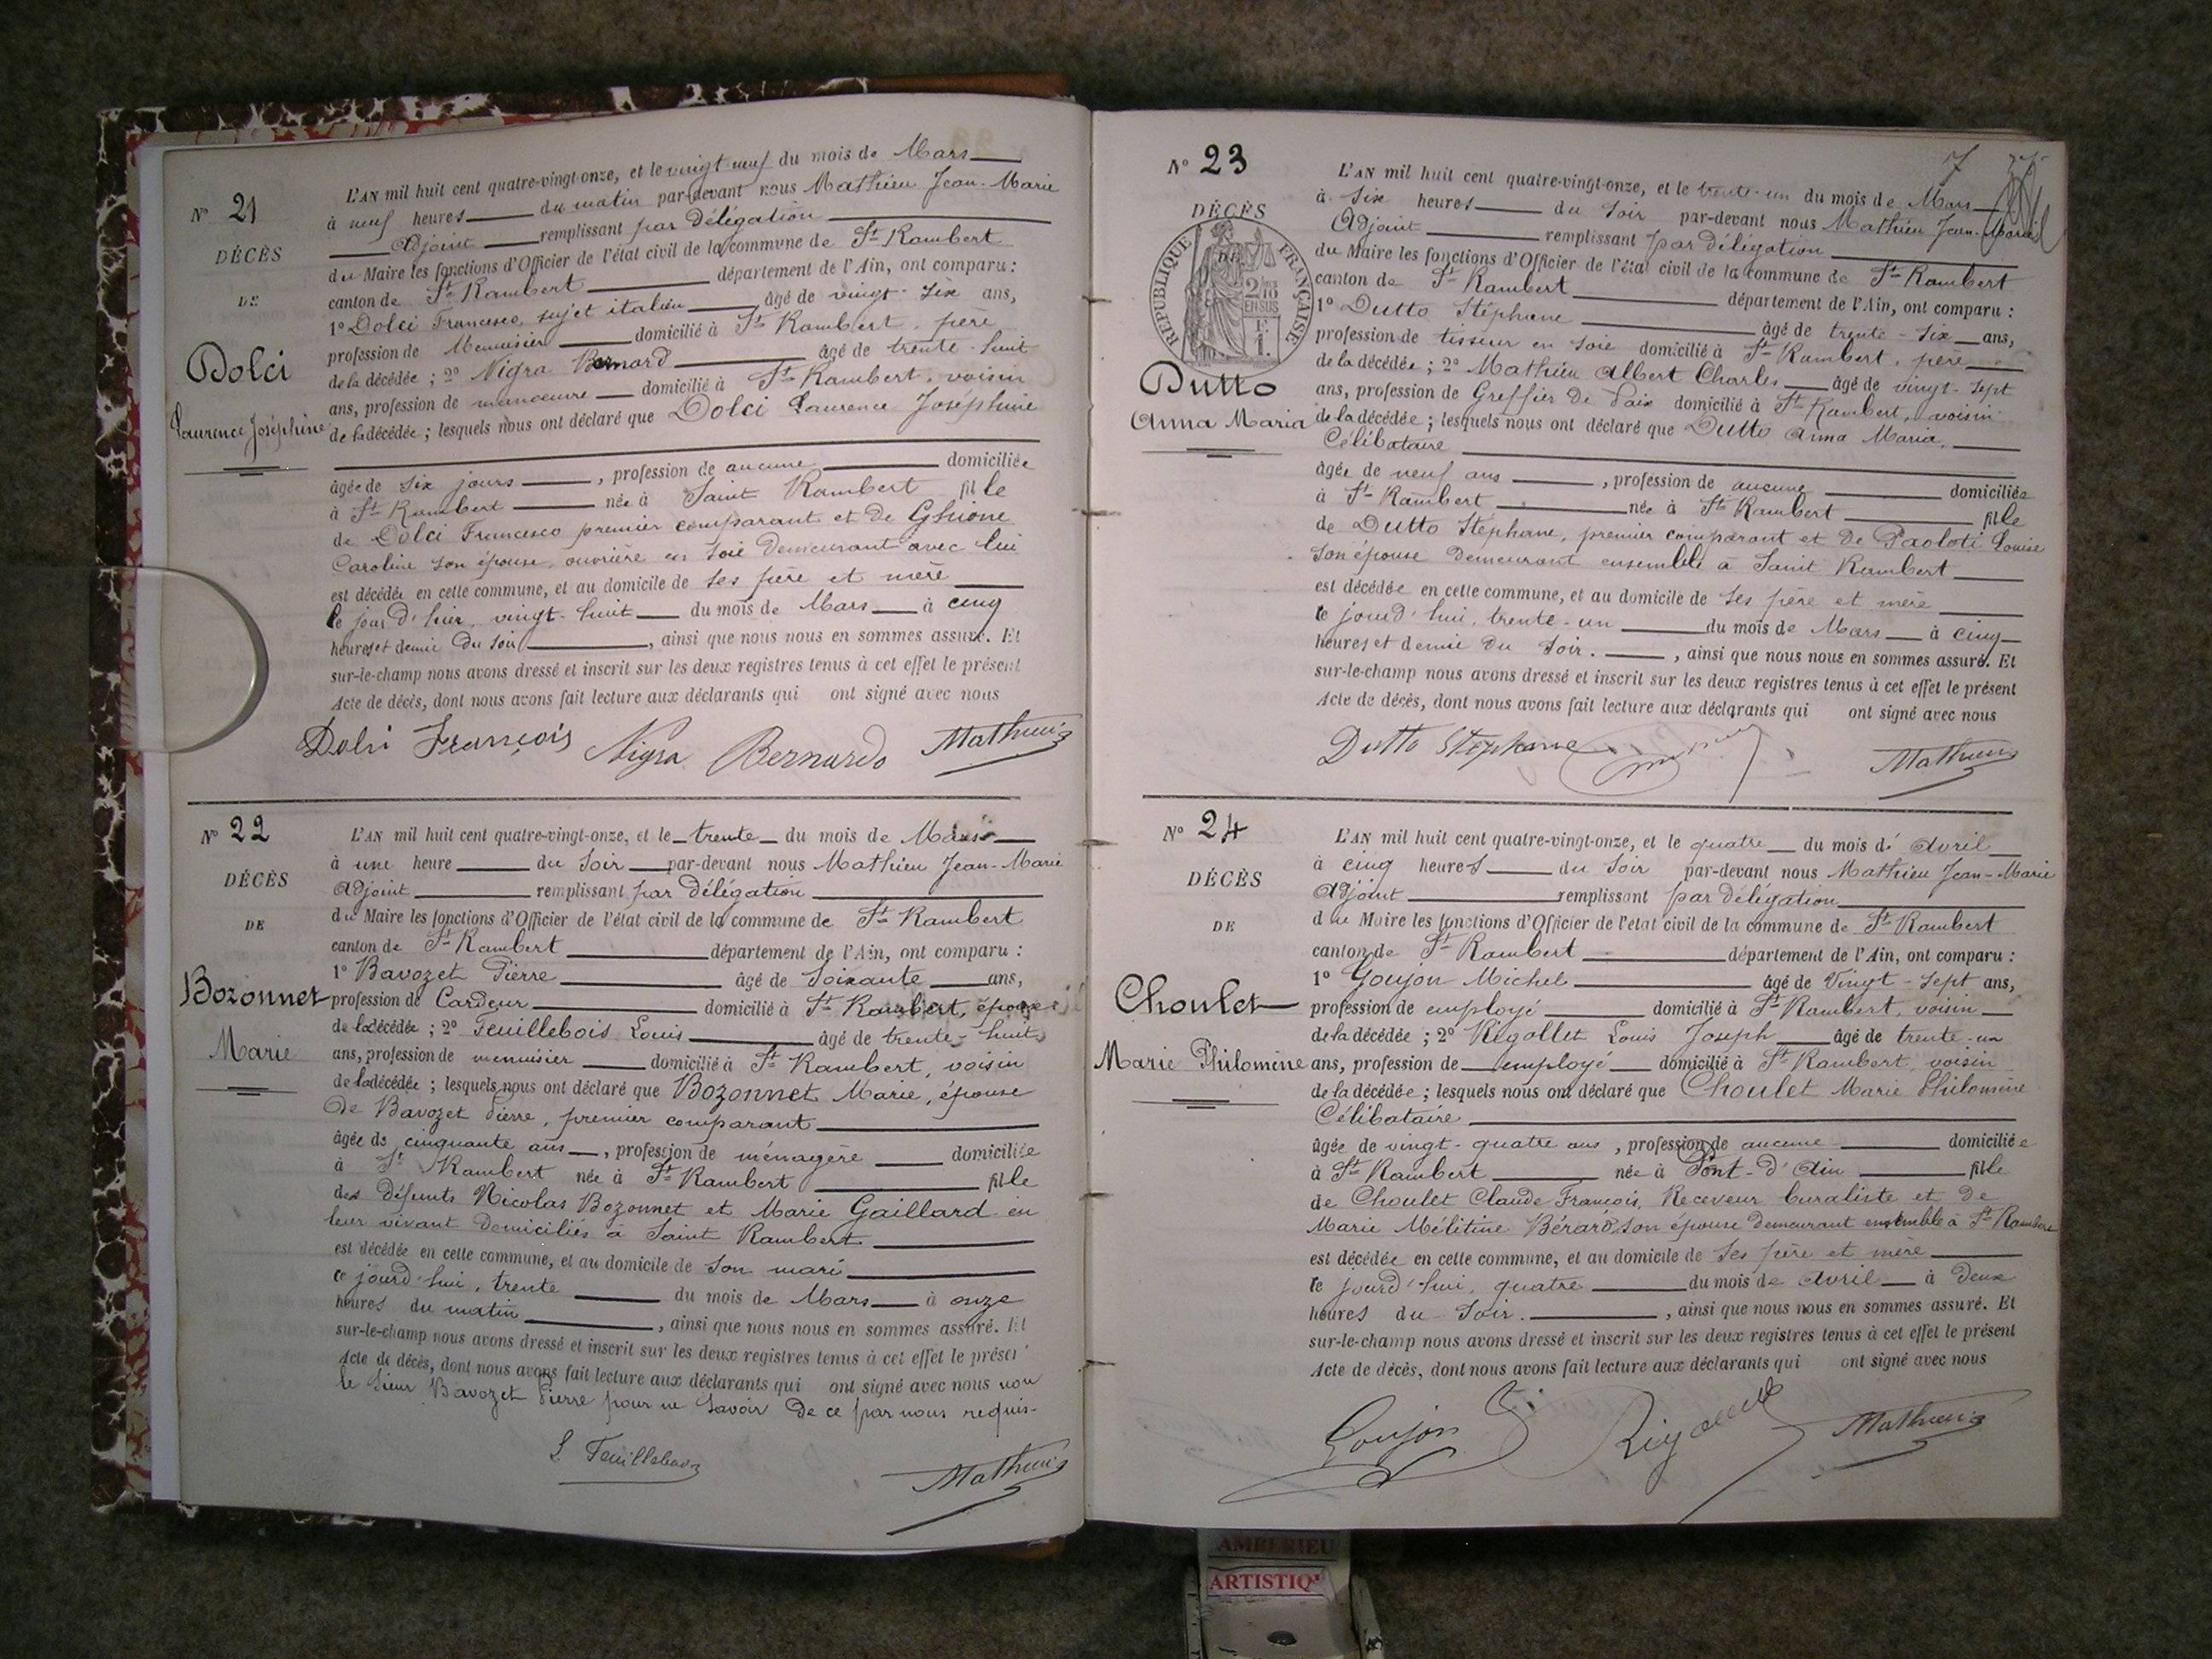 N° 21
DÉCÈS
DE
Dolci
Laurence Joséphine
L'AN mil huit cent quatre-vingt-onze, et le vingt neuf du mois de Mars
à neuf heures du matin par-devant nous Mathieu Jean-Marie
Adjoint remplissant par délégation
du Maire les fonctions d'Officier de l'état civil de la commune de St Rambert
canton de St Rambert département de l'Ain, ont comparu :
1° Dolci Francesco, sujet italien âgé de vingt-six ans,
profession de Menuisier domicilié à St Rambert, père
de la décédée ; 2° Nigra Bernard âgé de trente-huit
ans, profession de manœuvre domicilié à St Rambert, voisin
de la décédée ; lesquels nous ont déclaré que Dolci Laurence Joséphine
âgée de six jours , profession de aucune domiciliée
à St Rambert née à Saint Rambert fille
de Dolci Francesco premier comparant et de Ghione
Caroline son épouse, ouvrière en soie demeurant avec lui
est décédée en cette commune, et au domicile de ses père et mère
le jour d'hier, vingt-huit du mois de Mars à cinq
heures et demie du soir , ainsi que nous nous en sommes assuré. Et
sur-le-champ nous avons dressé et inscrit sur les deux registres tenus à cet effet le présent
Acte de décès, dont nous avons fait lecture aux déclarants qui ont signé avec nous
Dolci François Nigra Bernardo Mathieu
N° 22
DÉCÈS
DE
Bozonnet
Marie
L'AN mil huit cent quatre-vingt-onze, et le trente du mois de Mars
à une heure du soir par-devant nous Mathieu Jean-Marie
Adjoint remplissant par délégation
du Maire les fonctions d'Officier de l'état civil de la commune de St Rambert
canton de St Rambert département de l'Ain, ont comparu :
1° Bavozet Pierre âgé de soixante ans,
profession de Cardeur domicilié à St Rambert, époux
de la décédée ; 2° Feuillebois Louis âgé de trente-huit
ans, profession de menuisier domicilié à St Rambert, voisin
de la décédée ; lesquels nous ont déclaré que Bozonnet Marie, épouse
de Bavozet Pierre, premier comparant
âgée de cinquante ans , profession de ménagère domiciliée
à St Rambert née à St Rambert fille
des défunts Nicolas Bozonnet et Marie Gaillard en
leur vivant domiciliés à Saint Rambert
est décédée en cette commune, et au domicile de son mari
ce jourd'hui, trente du mois de Mars à onze
heures du matin , ainsi que nous nous en sommes assuré. Et
sur-le-champ nous avons dressé et inscrit sur les deux registres tenus à cet effet le présent
Acte de décès, dont nous avons fait lecture aux déclarants qui ont signé avec nous non
le sieur Bavozet Pierre pour ne savoir de ce par nous requis.
L Feuillebois Mathieu
7
N° 23
DÉCÈS
DE
RÉPUBLIQUE FRANÇAISE
2/10 EN SUS
Dutto
Anna Maria
L'AN mil huit cent quatre-vingt-onze, et le trente-un du mois de Mars
à six heures du soir par-devant nous Mathieu Jean-Marie
Adjoint remplissant par délégation
du Maire les fonctions d'Officier de l'état civil de la commune de St Rambert
canton de St Rambert département de l'Ain, ont comparu :
1° Dutto Stéphane âgé de trente-six ans,
profession de tisseur en soie domicilié à St Rambert, père
de la décédée ; 2° Mathieu Albert Charles âgé de vingt-sept
ans, profession de Greffier de Paix domicilié à St Rambert, voisin
de la décédée ; lesquels nous ont déclaré que Dutto Anna Maria,
Célibataire
âgée de neuf ans , profession de aucune domiciliée
à St Rambert née à St Rambert fille
de Dutto Stéphane, premier comparant et de Paoloti Louise
son épouse demeurant ensemble à Saint Rambert
est décédée en cette commune, et au domicile de ses père et mère
ce jourd'hui, trente-un du mois de Mars à cinq
heures et demie du soir. , ainsi que nous nous en sommes assuré. Et
sur-le-champ nous avons dressé et inscrit sur les deux registres tenus à cet effet le présent
Acte de décès, dont nous avons fait lecture aux déclarants qui ont signé avec nous
Dutto Stephane Mathieu
N° 24
DÉCÈS
DE
Choulet
Marie Philomène
L'AN mil huit cent quatre-vingt-onze, et le quatre du mois de Avril
à cinq heures du soir par-devant nous Mathieu Jean-Marie
Adjoint remplissant par délégation
du Maire les fonctions d'Officier de l'état civil de la commune de St Rambert
canton de St Rambert département de l'Ain, ont comparu :
1° Goujon Michel âgé de Vingt-sept ans,
profession de employé domicilié à St Rambert, voisin
de la décédée ; 2° Rigollet Louis Joseph âgé de trente-un
ans, profession de employé domicilié à St Rambert, voisin
de la décédée ; lesquels nous ont déclaré que Choulet Marie Philomène
Célibataire
âgée de vingt-quatre ans , profession de aucune domiciliée
à St Rambert née à Pont-d'Ain fille
de Choulet Claude François, Receveur buraliste et de
Marie Mélitine Bérard, son épouse demeurant ensemble à St Rambert
est décédée en cette commune, et au domicile de ses père et mère
ce jourd'hui, quatre du mois de Avril à deux
heures du soir. , ainsi que nous nous en sommes assuré. Et
sur-le-champ nous avons dressé et inscrit sur les deux registres tenus à cet effet le présent
Acte de décès, dont nous avons fait lecture aux déclarants qui ont signé avec nous
Goujon Rigollet Mathieu
AMBERIEU
ARTISTIQ